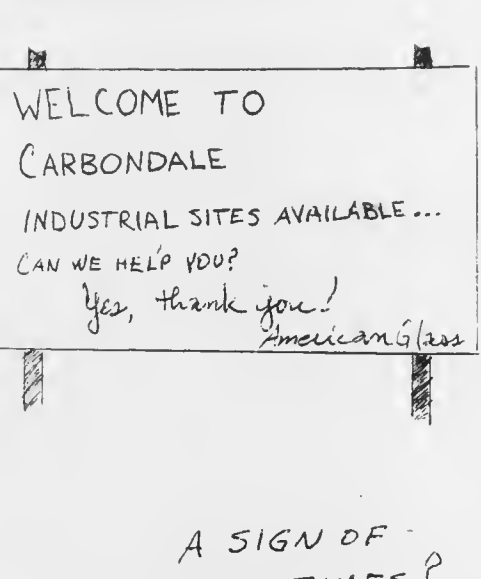 WELCOME TO
CARBONDALE
INDUSTRIAL SITES AVAILABLE...
CAN WE HELP YOU?
Yes, thank you!
American Glass
A SIGN OF
TIMES?